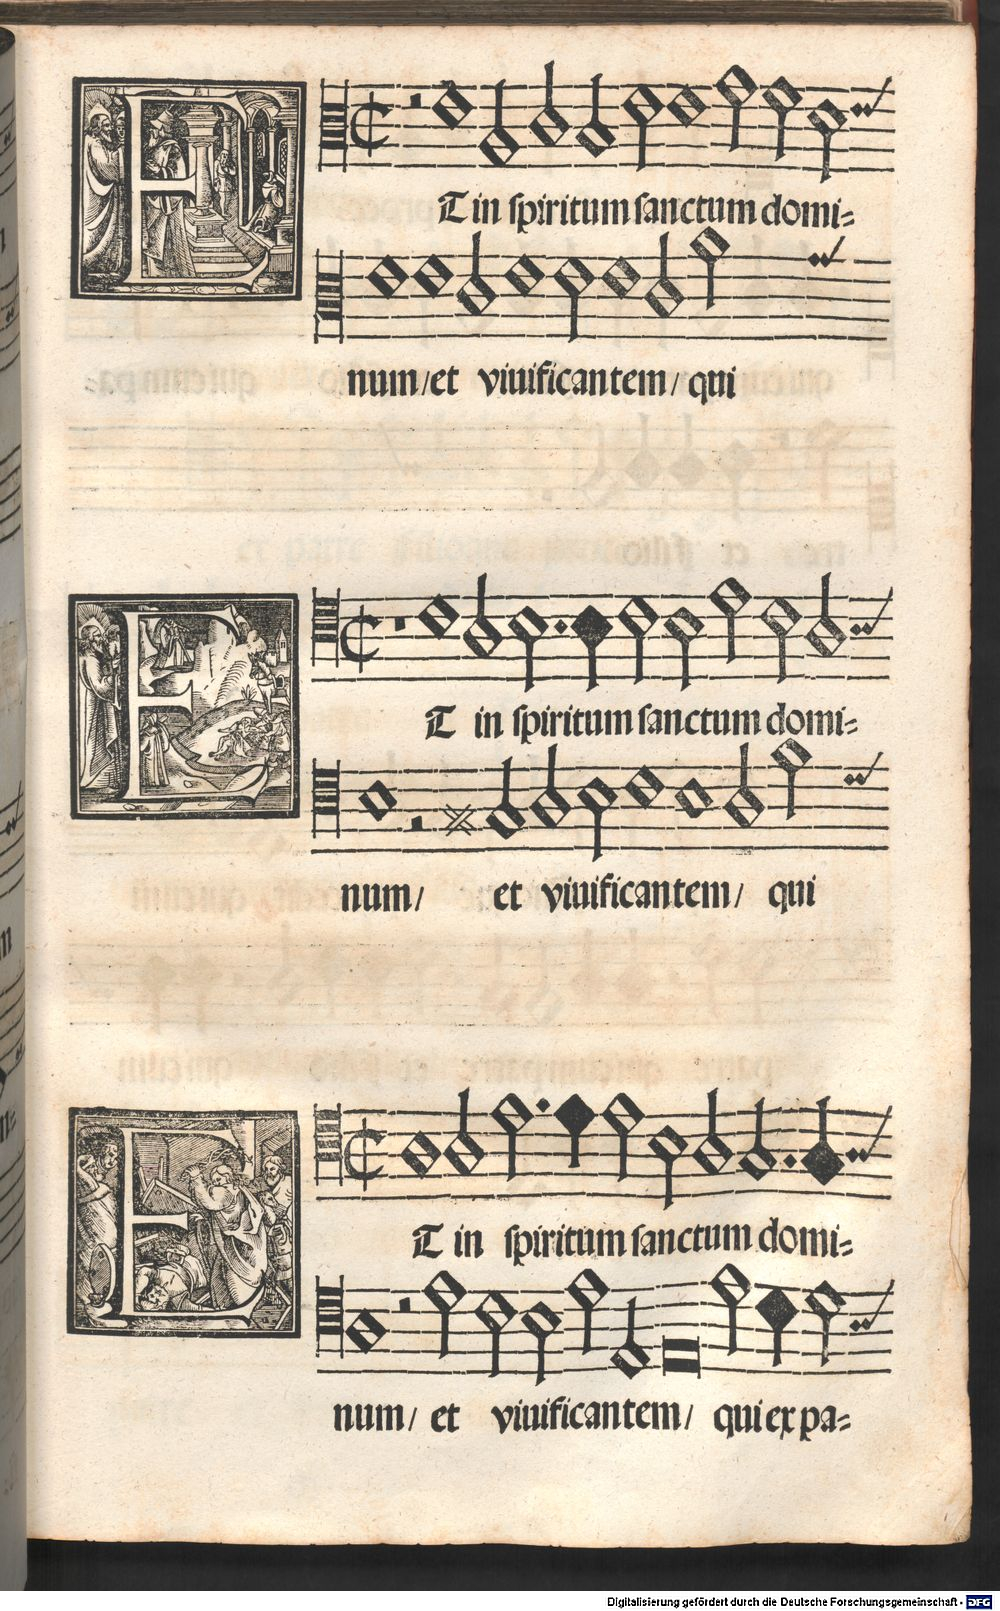 ET in spiritum sanctum domi=
num/et viuificantem/ qui
ET in spiritum sanctum domi=
num/ et viuificantem/ qui
ET in spiritum sanctum domi=
num/ et viuificantem/ qui ex pa=
Digitalisierung gefördert durch die Deutsche Forschungsgemeinschaft - DFG